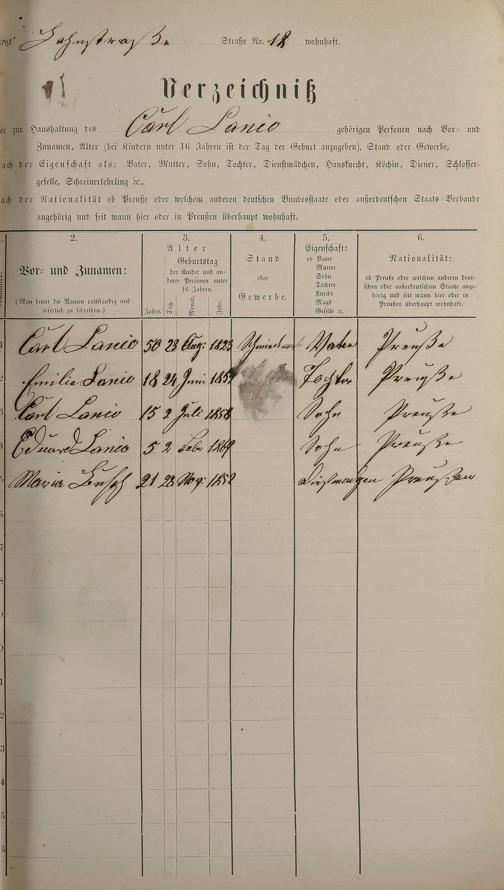 Lahnstraße Straße No. 18 wohnhaft.
Verzeichniß
zur Haushaltung des Carl Lanio gehörigen Personen nach Vor- und
Zunamen, Alter (bei Kindern unter 16 Jahren ist der Tag der Geburt anzugeben), Stand oder Gewerbe,
nach der Eigenschaft als: Vater, Mutter, Sohn, Tochter, Dienstmädchen, Hausknecht, Köchin, Diener, Schlosser-
geselle, Schreinerlehrling ꝛc.,
nach der Nationalität ob Preuße oder welchem anderen deutschen Bundesstaate oder außerdeutschen Staats-Verbande
angehörig und seit wann hier oder in Preußen überhaupt wohnhaft.
2. 3. 4. 5. 6.
Vor- und Zunamen:
(Man bittet die Namen vollständig und
leserlich zu schreiben.)
Alter
Geburtstag
der Kinder und an-
derer Personen unter
16 Jahren.
Jahre. Tag. Monat. Jahr.
Stand
oder
Gewerbe.
Eigenschaft:
ob Vater
Mutter
Sohn
Tochter
Knecht
Magd
Geselle ꝛc.
Nationalität:
ob Preuße oder welchem anderen deut-
schen oder außerdeutschen Staate ange-
hörig und seit wann hier oder in
Preußen überhaupt wohnhaft.
1 Carl Lanio 50 23 Aug: 1823 Vater Preuße
2 Emilie Lanio 18 24 Juni Tochter Preuße
3 Carl Lanio 15 2 Juli 1858 Sohn Preuße
4 Eduard Lanio 5 2 Feb: 1869 Sohn Preuße
5 Maria 21 23 1852 Preußen
6
7
8
9
0
1
2
3
4
5
6